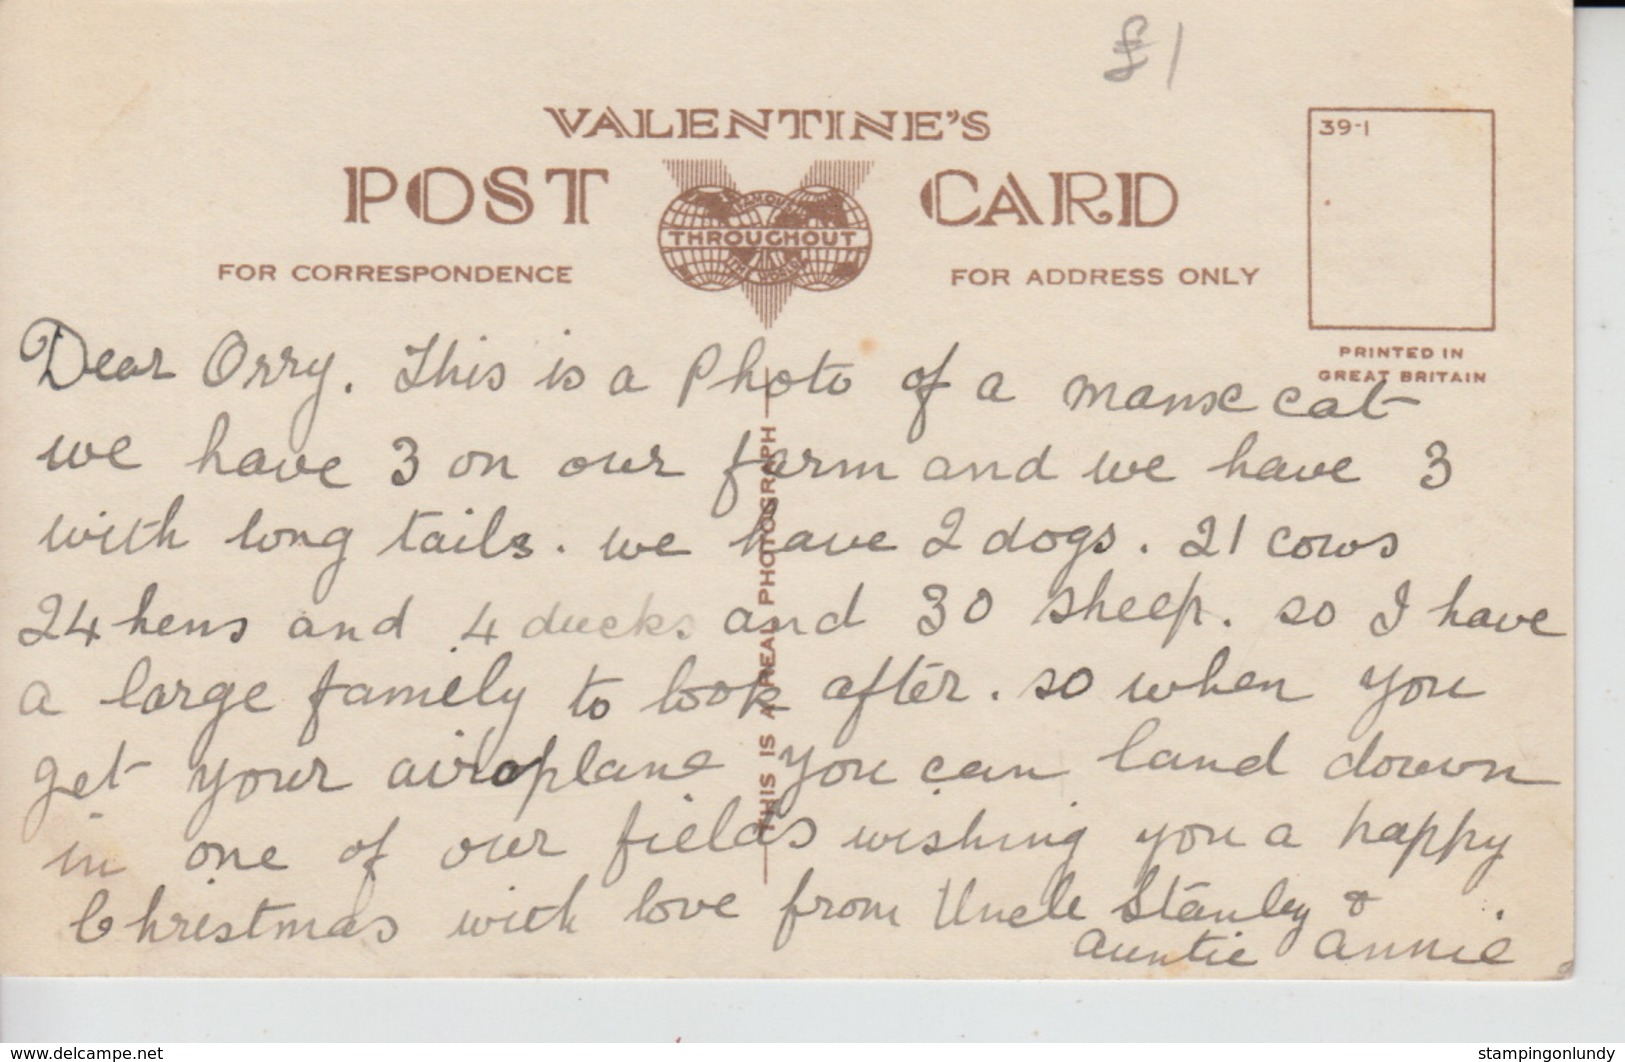 £1
VALENTINE'S
POST CARD
FAMOUS
THROUGHOUT
THE WORLD
FOR CORRESPONDENCE
FOR ADDRESS ONLY
39-1
PRINTED IN
GREAT BRITAIN
THIS IS A REAL PHOTOGRAPH
Dear Orry. This is a Photo of a manx cat
we have 3 on our farm and we have 3
with long tails. we have 2 dogs. 21 cows
24 hens and 4 ducks and 30 sheep. so I have
a large family to look after. so when you
get your airoplane you can land down
in one of our fields wishing you a happy
Christmas with love from Uncle Stanley &
auntie annie.
www.delcampe.net
stampingonlundy